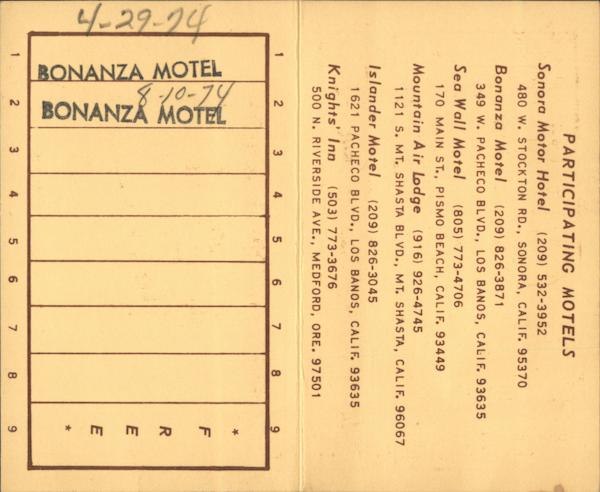 4-29-74
1 BONANZA MOTEL 1
8-10-74
2 BONANZA MOTEL 2
3 3
4 4
5 5
6 6
7 7
8 8
9 * FREE * 9
PARTICIPATING MOTELS
Sonora Motor Hotel (209) 532-3952
480 W. STOCKTON RD., SONORA, CALIF. 95370
Bonanza Motel (209) 826-3871
349 W. PACHECO BLVD., LOS BANOS, CALIF. 93635
Sea Wall Motel (805) 773-4706
170 MAIN ST., PISMO BEACH, CALIF. 93449
Mountain Air Lodge (916) 926-4745
1121 S. MT. SHASTA BLVD., MT. SHASTA, CALIF. 96067
Islander Motel (209) 826-3045
1621 PACHECO BLVD., LOS BANOS, CALIF. 93635
Knights' Inn (503) 773-3676
500 N. RIVERSIDE AVE., MEDFORD, ORE. 97501